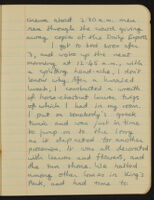 about 2.30 a.m. men
ran through the court giving
away copies of the Daily Express
I got to bed soon after
3, and woke up the next
morning at 12.45 a.m., with
a splitting head-ache, I don't
know why. After a hurried
wash, I constructed a wreath
of horse-chestnut leaves, twigs
of which I had in my room.
I put on somebody's greek
tunic and was just in time
to jump on to the lorry
as it departed for another
procession. It was all decorated
with leaves and flowers, and
the sun shone. We halted
among other lorries in King's
Park, and had time to